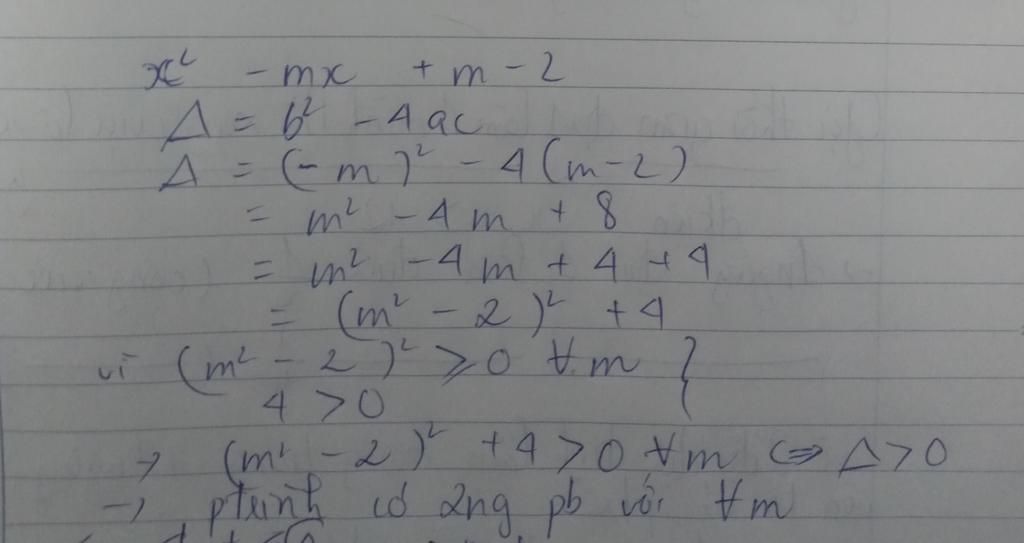 x² - mx + m - 2
Δ = b² - 4ac
Δ = (-m)² - 4(m-2)
= m² - 4m + 8
= m² - 4m + 4 + 4
= (m² - 2)² + 4
vì (m² - 2)² ≥ 0 ∀m }
4 > 0
→ (m² - 2)² + 4 > 0 ∀m ⇔ Δ > 0
→ ptrinh có 2ng pb với ∀m